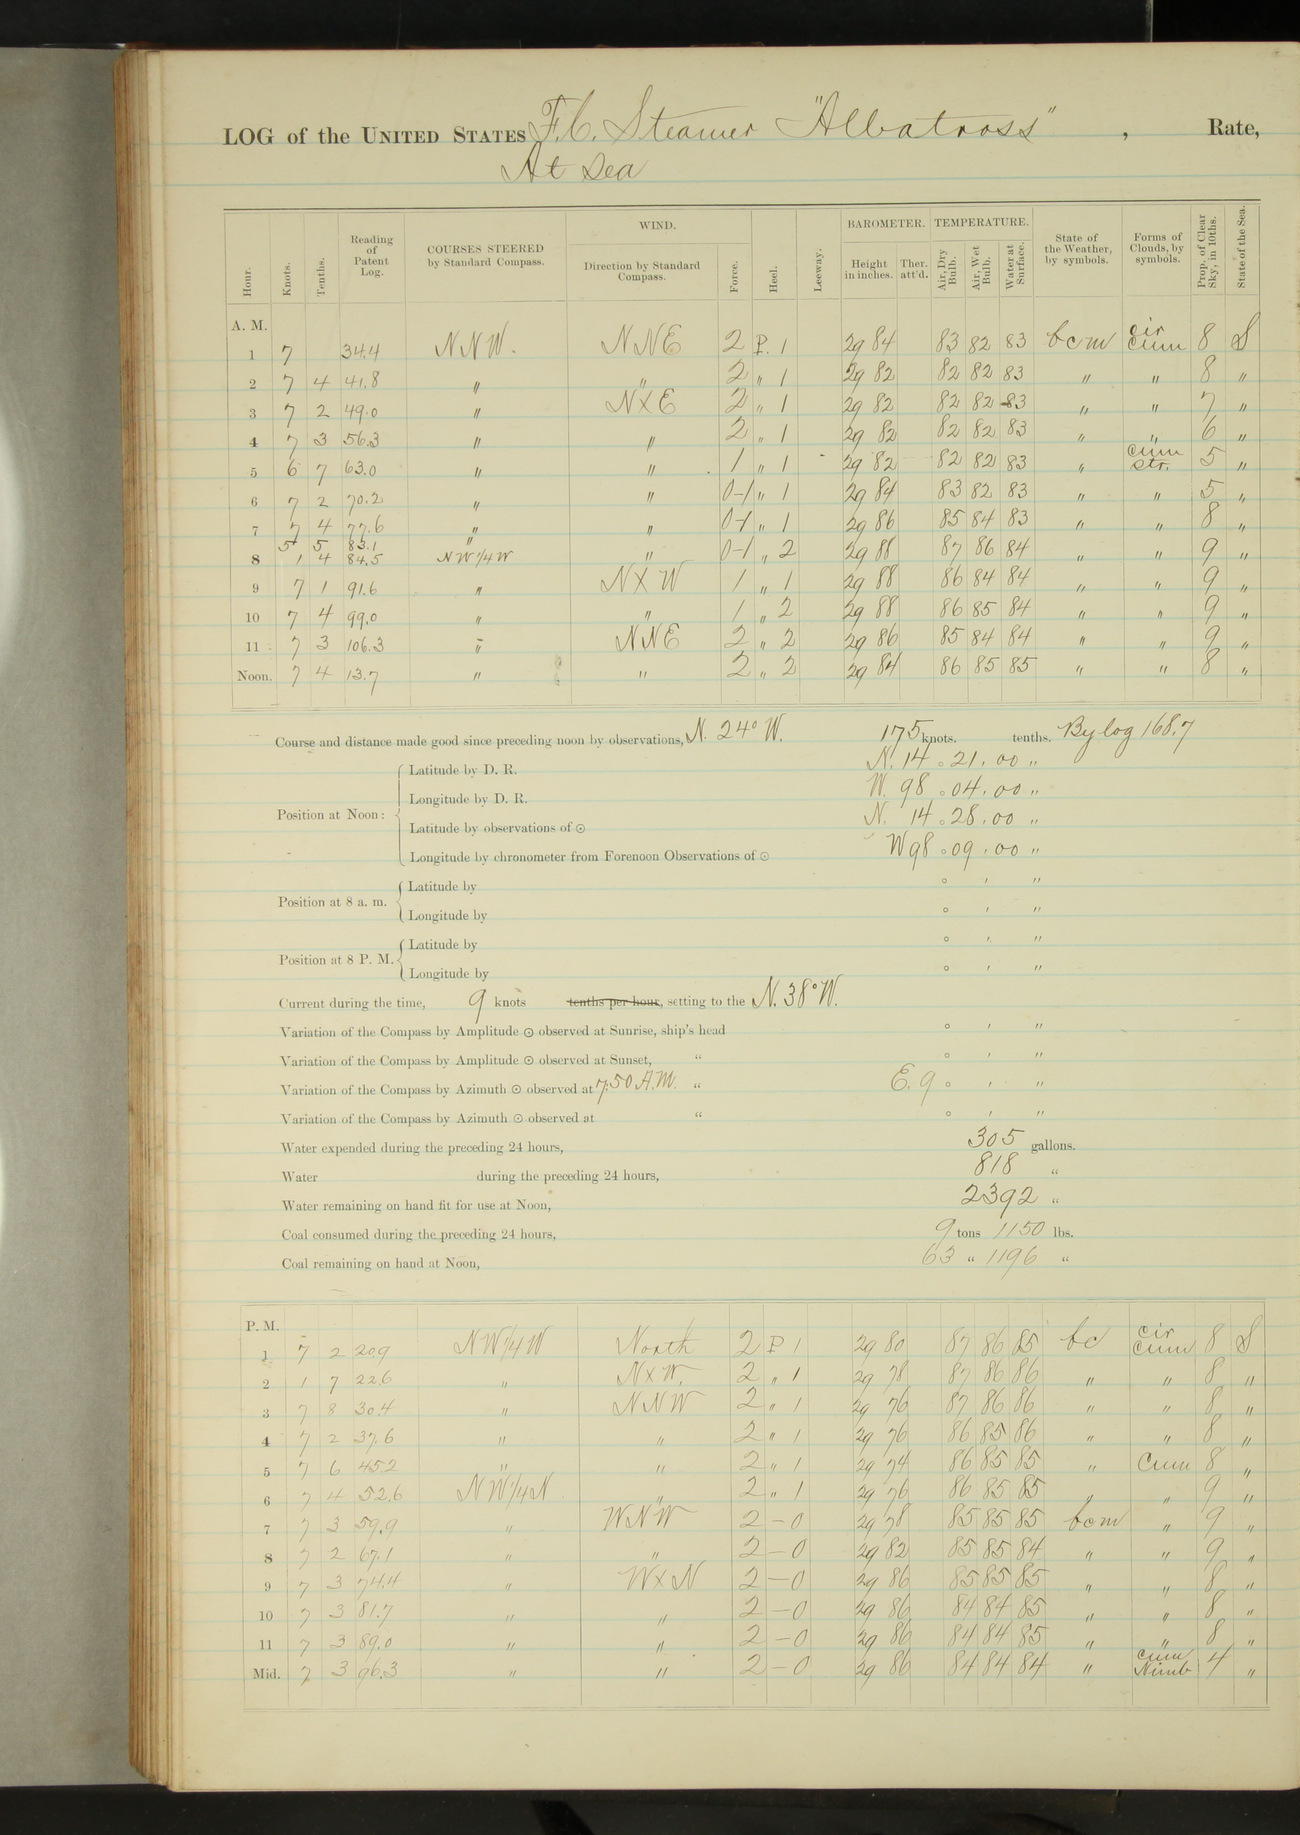 LOG of the UNITED STATES F.C. Steamer "Albatross" , Rate,
At Sea
Hour. Knots. Tenths. Reading of Patent Log. COURSES STEERED by Standard Compass. WIND. Direction by Standard Compass. Force. Heel. Leeway. BAROMETER. Height in inches. Ther. att'd. TEMPERATURE. Air, Dry Bulb. Air, Wet Bulb. Water at Surface. State of the Weather, by symbols. Forms of Clouds, by symbols. Prop. of Clear Sky, in 10ths. State of the Sea.
A. M.
1 7 34.4 NNW. NNE 2 P. 1 29 84 83 82 83 bcm cir cum 8 S
2 7 4 41.8 " " 2 " 1 29 82 82 82 83 " " 8 "
3 7 2 49.0 " NXE 2 " 1 29 82 82 82 83 " " 7 "
4 7 3 56.3 " " 2 " 1 29 82 82 82 83 " " 6 "
5 6 7 63.0 " " 1 " 1 29 82 82 82 83 " cum str. 5 "
6 7 2 70.2 " " 0-1 " 1 29 84 83 82 83 " " 5 "
7 7 4 77.6 " " 0-1 " 1 29 86 85 84 83 " " 8 "
5 5 83.1 "
8 1 4 84.5 NW 1/4 W " 0-1 " 2 29 88 87 86 84 " " 9 "
9 7 1 91.6 " NXW 1 " 1 29 88 86 84 84 " " 9 "
10 7 4 99.0 " " 1 " 2 29 88 86 85 84 " " 9 "
11 7 3 106.3 " NNE 2 " 2 29 86 85 84 84 " " 9 "
Noon. 7 4 13.7 " " 2 " 2 29 84 86 85 85 " " 8 "
Course and distance made good since preceding noon by observations, N. 24° W. 175 knots. tenths. By log 168.7
Position at Noon:
Latitude by D. R. N. 14 ° 21 ' 00 "
Longitude by D. R. W. 98 ° 04 ' 00 "
Latitude by observations of ☉ N. 14 ° 28 ' 00 "
Longitude by chronometer from Forenoon Observations of ☉ W 98 ° 09 ' 00 "
Position at 8 a. m.
Latitude by ° ' "
Longitude by ° ' "
Position at 8 P. M.
Latitude by ° ' "
Longitude by ° ' "
Current during the time, 9 knots tenths per hour, setting to the N. 38° W.
Variation of the Compass by Amplitude ☉ observed at Sunrise, ship's head ° ' "
Variation of the Compass by Amplitude ☉ observed at Sunset, " ° ' "
Variation of the Compass by Azimuth ☉ observed at 7:50 A.M. " E. 9 ° ' "
Variation of the Compass by Azimuth ☉ observed at " ° ' "
Water expended during the preceding 24 hours, 305 gallons.
Water during the preceding 24 hours, 818 "
Water remaining on hand fit for use at Noon, 2392 "
Coal consumed during the preceding 24 hours, 9 tons 1150 lbs.
Coal remaining on hand at Noon, 63 " 1196 "
P. M.
1 7 2 20.9 NW 1/4 W North 2 P 1 29 80 87 86 85 bc cir cum 8 S
2 1 7 22.6 " NXW. 2 " 1 29 78 87 86 86 " " 8 "
3 7 8 30.4 " NNW 2 " 1 29 76 87 86 86 " " 8 "
4 7 2 37.6 " " 2 " 1 29 76 86 85 86 " " 8 "
5 7 6 45.2 " " 2 " 1 29 74 86 85 85 " Cum 8 "
6 7 4 52.6 NW 1/4 N " 2 " 1 29 76 86 85 85 " " 9 "
7 7 3 59.9 " WNW 2 - 0 29 78 85 85 85 bcm " 9 "
8 7 2 67.1 " " 2 - 0 29 82 85 85 84 " " 9 "
9 7 3 74.4 " WXN 2 - 0 29 86 85 85 85 " " 8 "
10 7 3 81.7 " " 2 - 0 29 86 84 84 85 " " 8 "
11 7 3 89.0 " " 2 - 0 29 86 84 84 85 " " 8 "
Mid. 7 3 96.3 " " 2 - 0 29 86 84 84 84 " cum Nimb 4 "